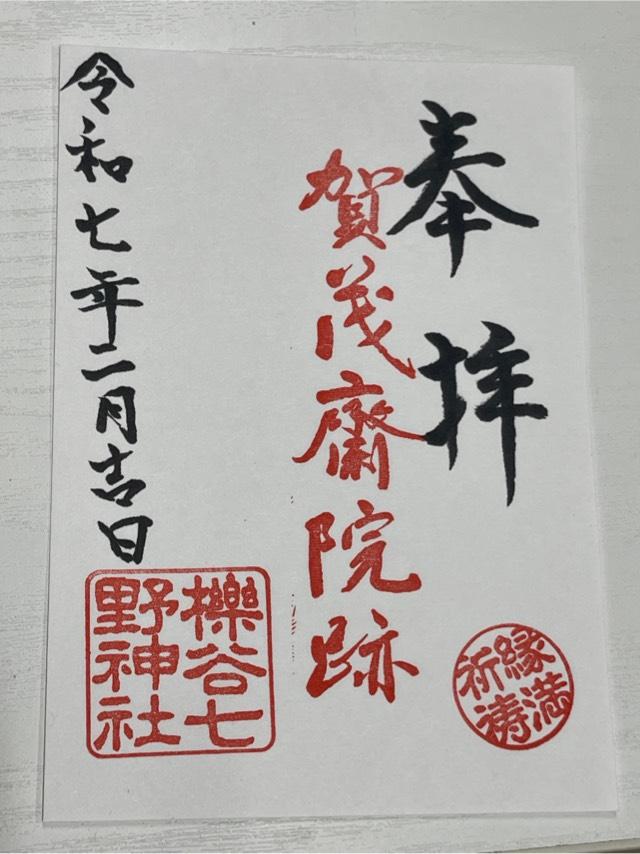 奉拝
賀茂齋院跡
令和七年二月吉日
櫟谷七
野神社
縁満
祈祷